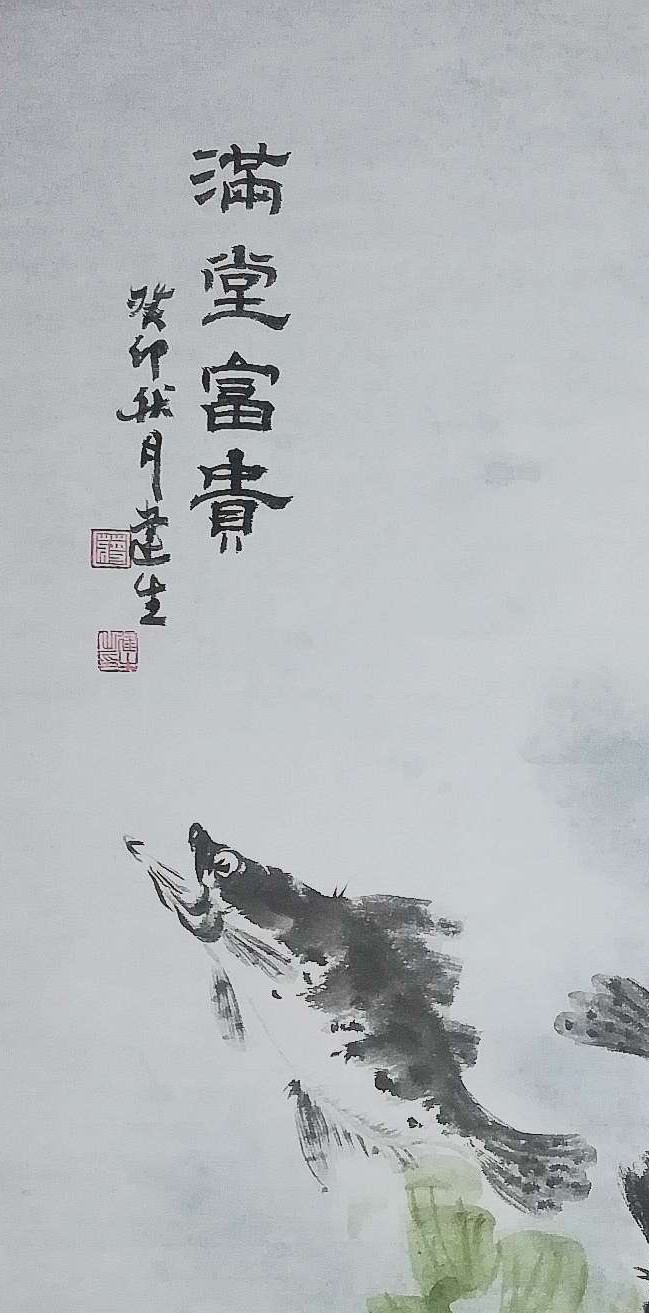 滿堂富貴
癸卯秋月建生